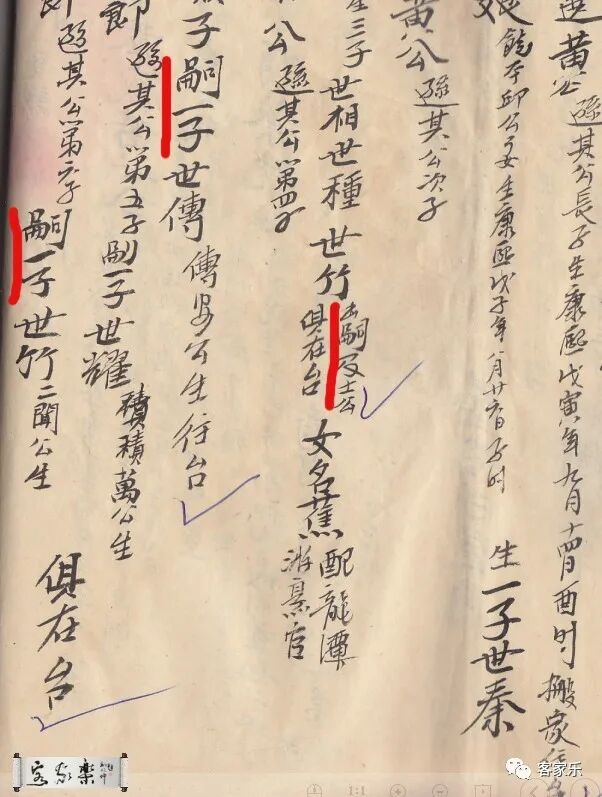 黄公 遜其公長子生康熙戊寅年九月十四日酉时 搬家
饶平邱公女生康熙戊子年八月廿六日子时 生一子世秦
黄公 遜其公次子
生三子世相世種世竹 出嗣及士公 俱在台 女名蕉 配龍潭
公 遜其公第四子
子嗣一子世傳 傳 公生往台
郎 遜其公第五子嗣一子世耀 積萬公生
郎 遜其公第六子 嗣一子世竹 二聞公生 俱在台
客家樂
客家乐